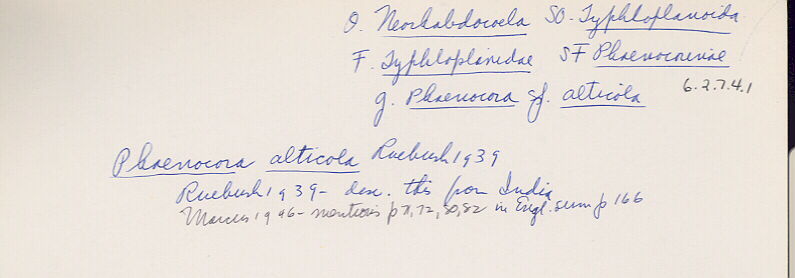 O. Neorhabdocoela SO. Typhloplanoida
F. Typhloplanidae SF Phaenocorinae
g. Phaenocora sp. alticola 6.2.7.4.1
Phaenocora alticola Ruebush 1939
Ruebush 1939 - desc. this from India
Marcus 1946 - mentions p 71, 72, 80, 82 in Engl. sum p 166